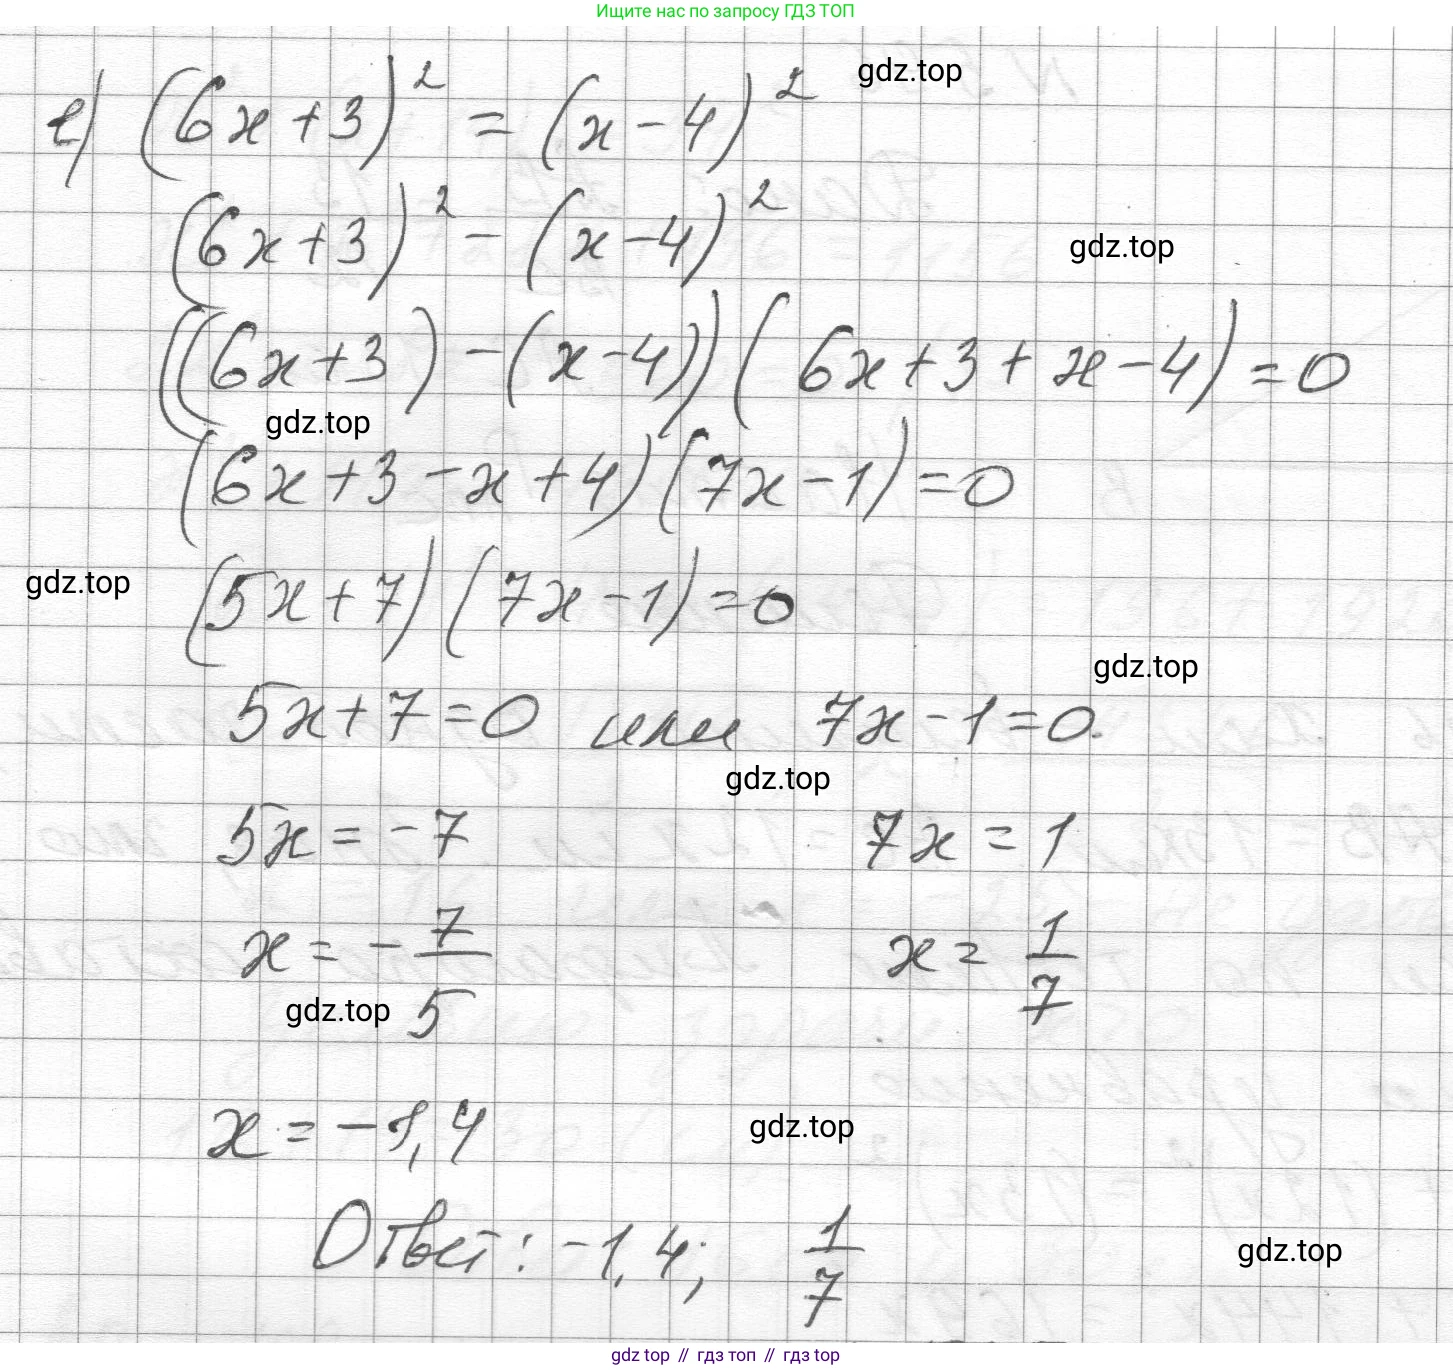 Ищите нас по запросу ГДЗ ТОП
gdz.top
е) (6x+3)² = (x-4)²
(6x+3)² - (x-4)²
gdz.top
((6x+3) - (x-4)) (6x+3+x-4) = 0
gdz.top
(6x+3-x+4) (7x-1) = 0
gdz.top
(5x+7) (7x-1) = 0
gdz.top
5x+7=0 или 7x-1=0.
gdz.top
5x = -7 7x = 1
x = -7/5 x = 1/7
gdz.top
x = -1,4
gdz.top
Ответ: -1,4; 1/7
gdz.top
gdz top // гдз топ // гдз top